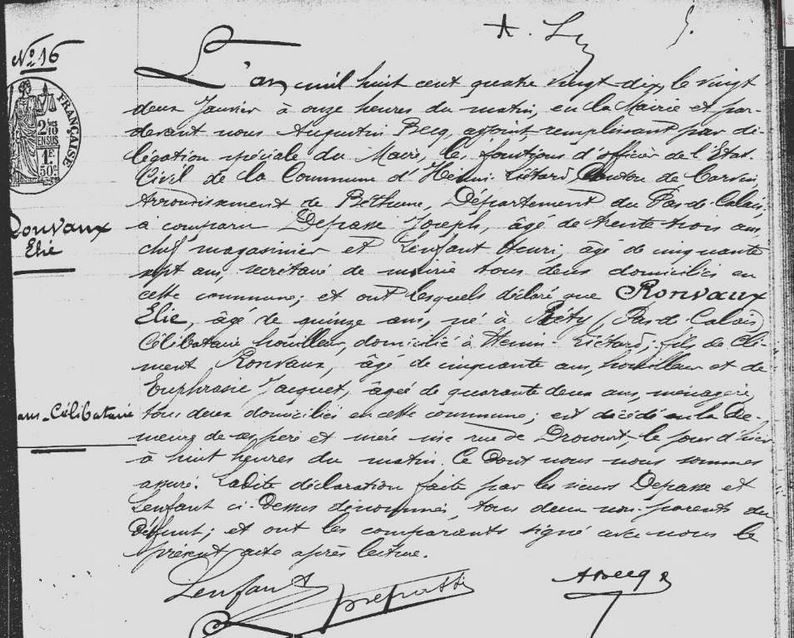 A. Ly
N° 16
L'an mil huit cent quatre vingt dix, le vingt
deux Janvier à onze heures du matin, en la Mairie et par-
devant nous Augustin Becq, adjoint remplissant par dé-
légation spéciale du Maire, les fonctions d'officier de l'Etat-
Civil de la Commune d'Hénin-Liétard, Canton de Carvin
Arrondissement de Béthune, Département du Pas-de-Calais,
à comparu Depasse Joseph, âgé de trente trois ans,
chef magasinier et Lenfant Henri, âgé de cinquante
sept ans, secrétaire de mairie tous deux domiciliés en
cette commune; et ont lesquels déclaré que Ronvaux
Elie, âgé de quinze ans, né à Réty (Pas-de-Calais)
Célibataire houilleur, domicilié à Hénin-Liétard; fils de Clé-
ment Ronvaux, âgé de cinquante ans, houilleur et de
Euphrasie Jacquet, âgée de quarante deux ans, ménagère,
tous deux domiciliés en cette commune; est décédé en la de-
meure de ses père et mère sise rue de Drocourt, le jour d'hier
à huit heures du matin. Ce dont nous nous sommes
assuré. Ladite déclaration faite par les sieurs Depasse et
Lenfant ci-dessus dénommés, tous deux non parents du
défunt; et ont les comparants signé avec nous le
présent acte après lecture.
FRANÇAISE
2/10
EN SUS
1F
50c
Ronvaux
Elie
ans_Célibataire
Lenfant
ABecq